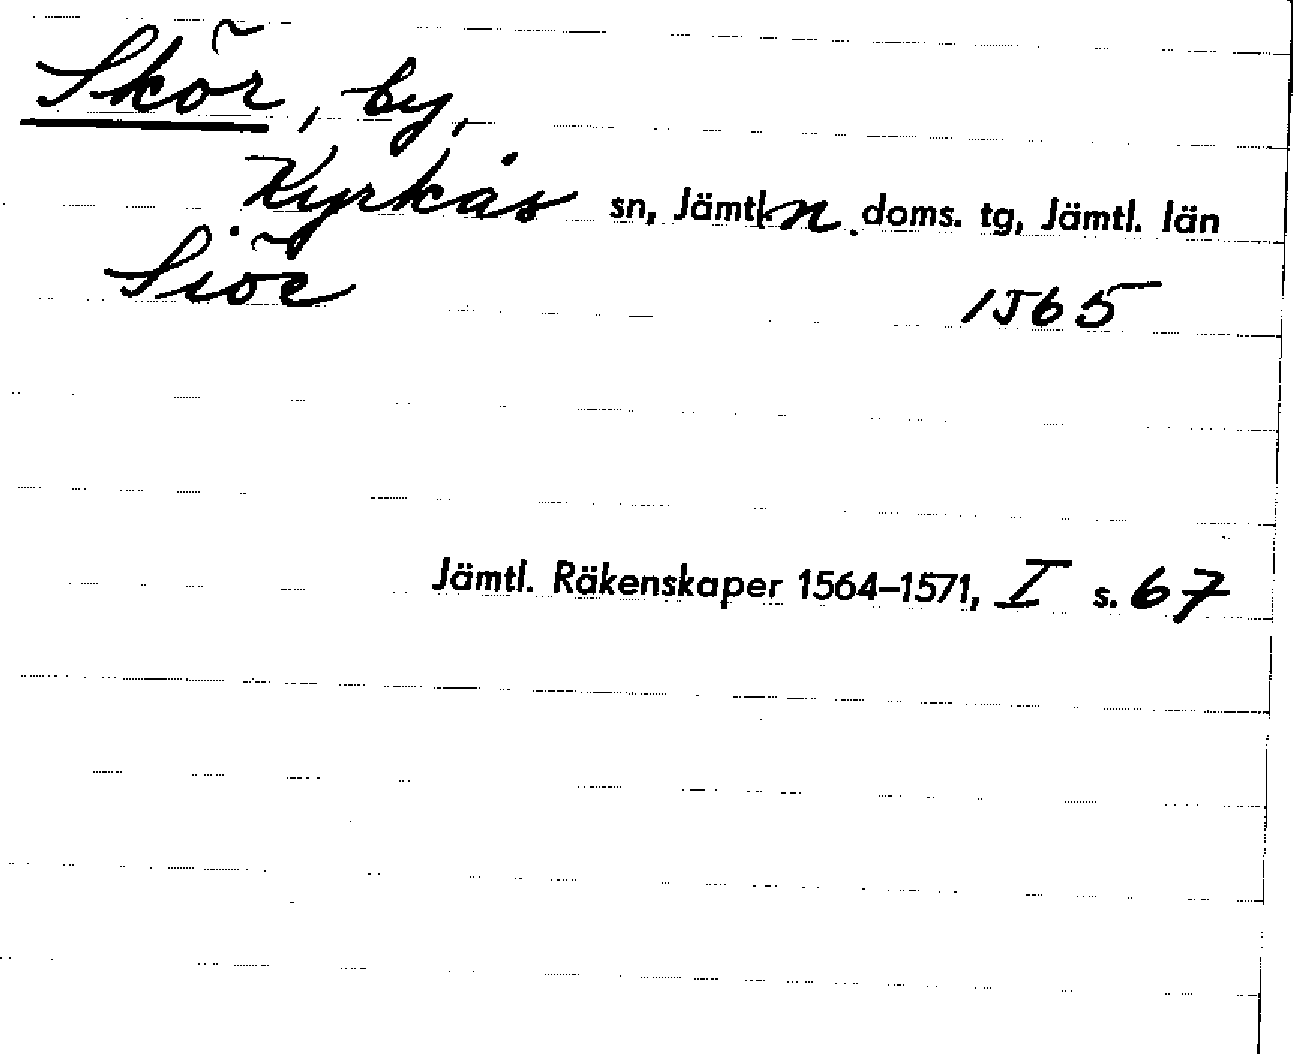 Skör, by,
Kyrkås sn, Jämtl. n. doms. tg, Jämtl. län
Siör 1565
Jämtl. Räkenskaper 1564–1571, I s. 67